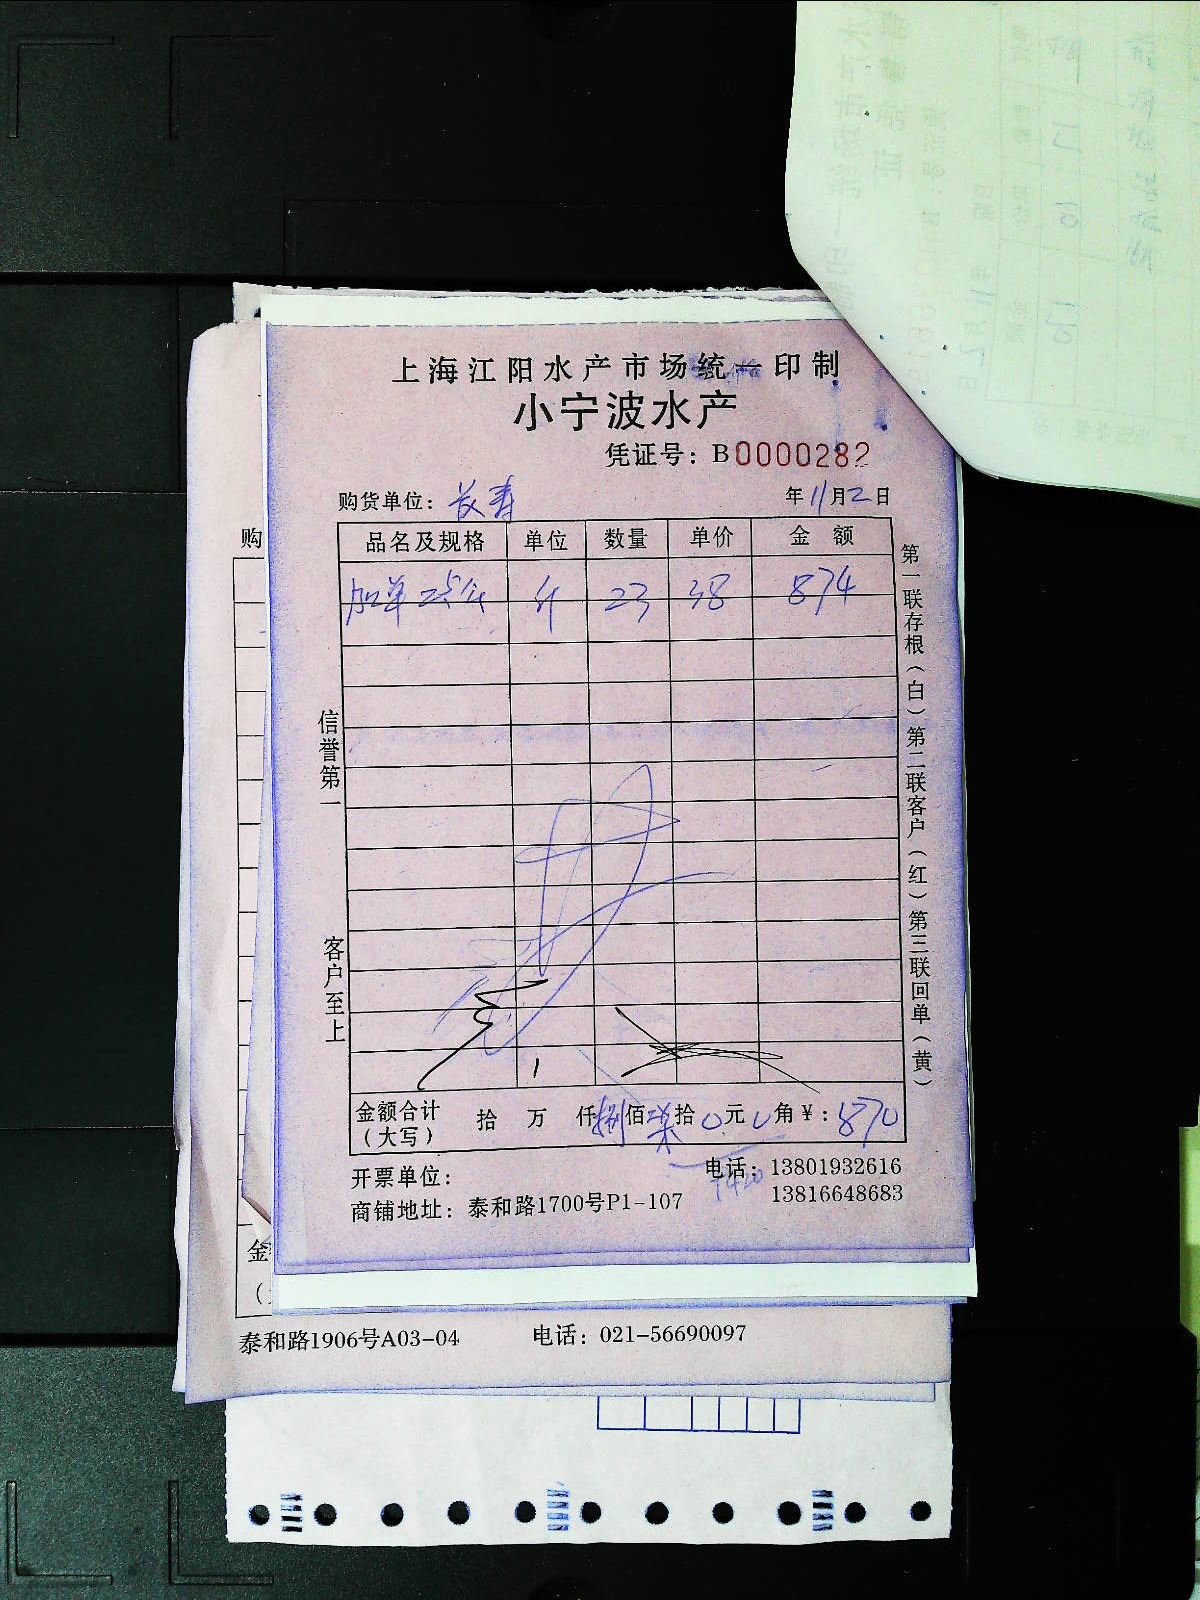 上海江阳水产市场统一印制
小宁波水产
凭证号：B0000282
购货单位：长寿 年11月2日
品名及规格 单位 数量 单价 金额
斤 23 38 874
信誉第一
客户至上
第一联存根（白）第二联客户（红）第三联回单（黄）
金额合计（大写） 拾 万 仟捌佰柒拾0元0角¥：870
开票单位：
电话：13801932616
13816648683
商铺地址：泰和路1700号P1-107
购
金
泰和路1906号A03-04 电话：021-56690097